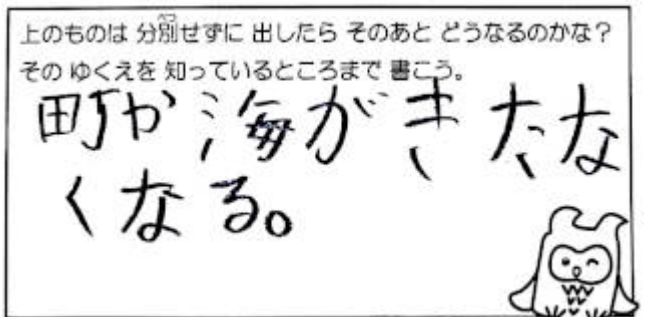 上のものは 分別せずに 出したら そのあと どうなるのかな？
その ゆくえを 知っているところまで 書こう。
町か海がきたな
くなる。